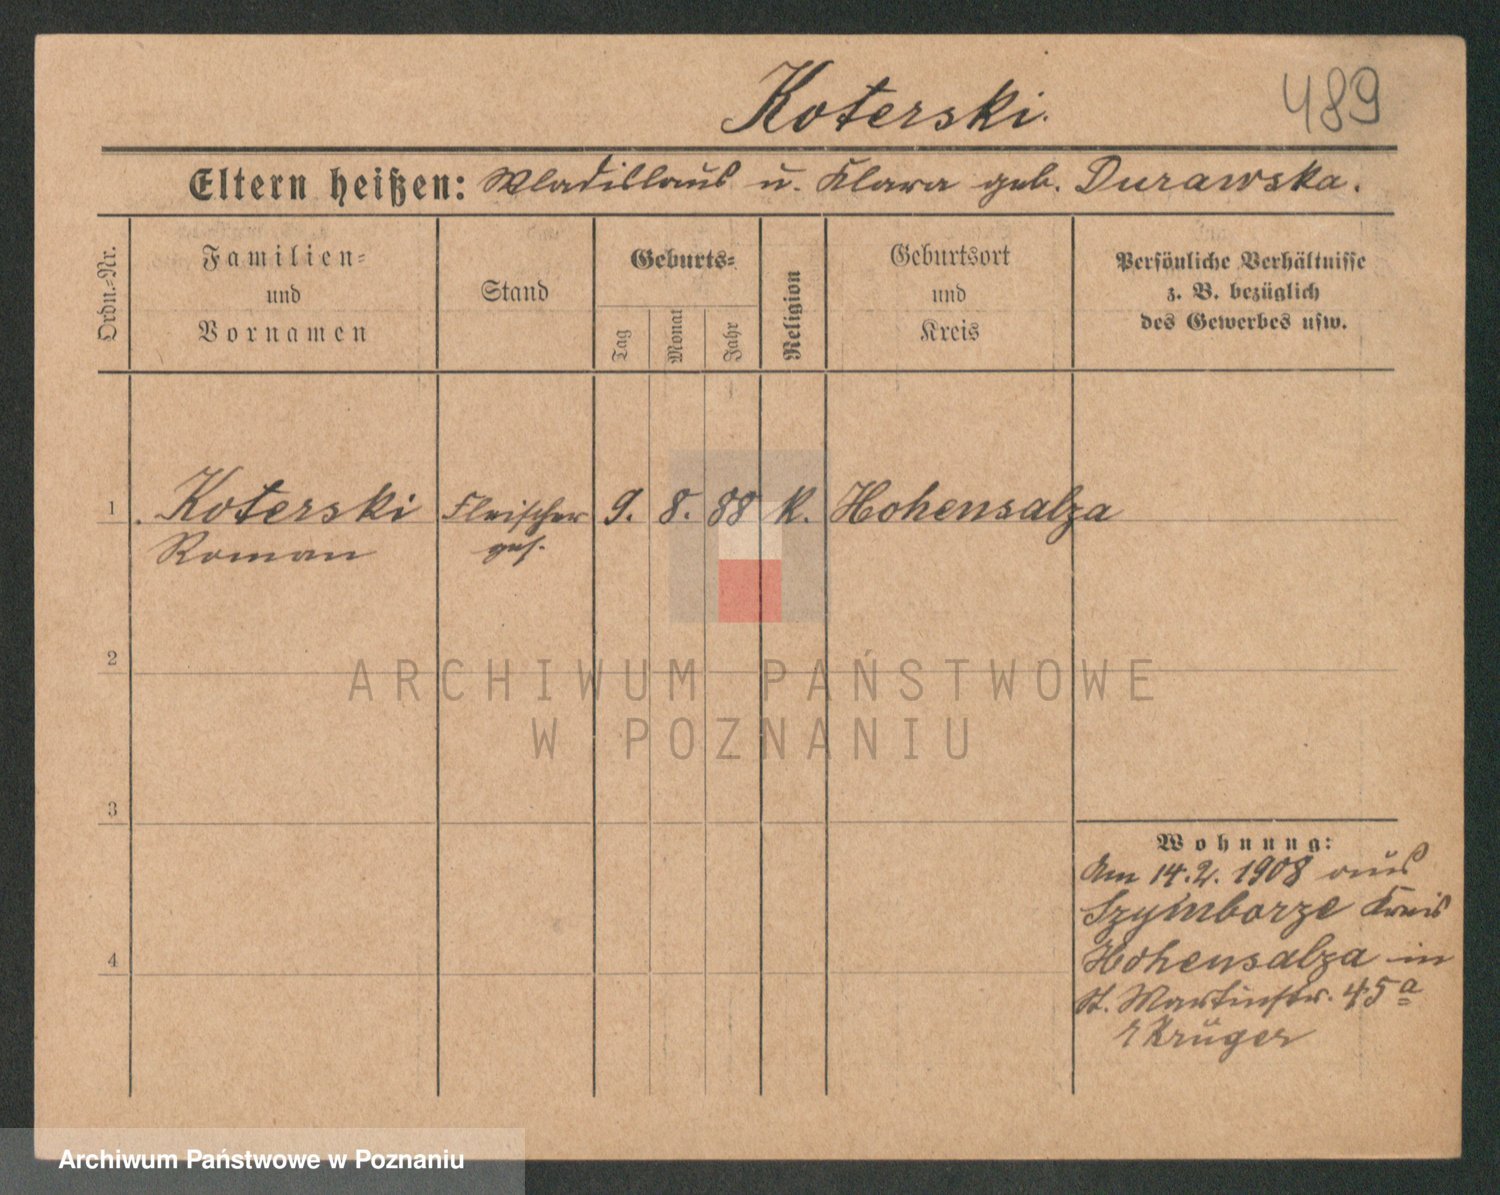 Koterski.
489
Eltern heißen: Wladislaus u. Klara geb. Durawska.
Ordn.-Nr.
Familien-
und
Vornamen
Stand
Geburts-
Tag
Monat
Jahr
Religion
Geburtsort
und
Kreis
Persönliche Verhältnisse
z. B. bezüglich
des Gewerbes usw.
1 Koterski Fleischer 9. 8. 88 K. Hohensalza
Roman ges.
2
ARCHIWUM PAŃSTWOWE
W POZNANIU
3
Wohnung:
Am 14.2. 1908 aus
Szymborze Kreis
4
Hohensalza in
St. Martinstr. 45a
Krüger
Archiwum Państwowe w Poznaniu